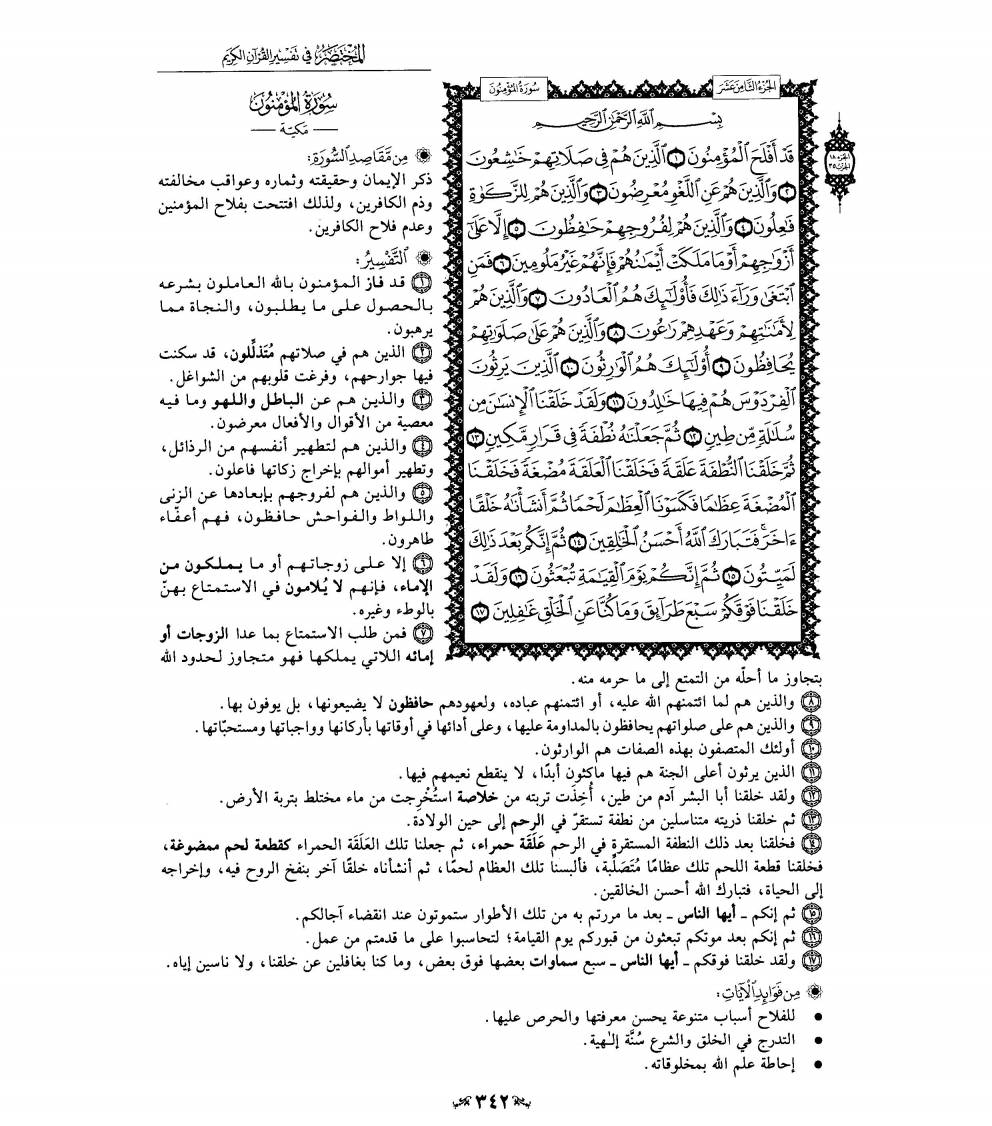 المختصر في تفسير القرآن الكريم
الجزء الثامن عشر
سورة المؤمنون
الجزء ١٨
الحزب ٣٥
بِسْمِ ٱللَّهِ ٱلرَّحْمَٰنِ ٱلرَّحِيمِ
قَدْ أَفْلَحَ ٱلْمُؤْمِنُونَ ١ ٱلَّذِينَ هُمْ فِي صَلَاتِهِمْ خَٰشِعُونَ
٢ وَٱلَّذِينَ هُمْ عَنِ ٱللَّغْوِ مُعْرِضُونَ ٣ وَٱلَّذِينَ هُمْ لِلزَّكَوٰةِ
فَٰعِلُونَ ٤ وَٱلَّذِينَ هُمْ لِفُرُوجِهِمْ حَٰفِظُونَ ٥ إِلَّا عَلَىٰٓ
أَزْوَٰجِهِمْ أَوْ مَا مَلَكَتْ أَيْمَٰنُهُمْ فَإِنَّهُمْ غَيْرُ مَلُومِينَ ٦ فَمَنِ
ٱبْتَغَىٰ وَرَآءَ ذَٰلِكَ فَأُوْلَٰٓئِكَ هُمُ ٱلْعَادُونَ ٧ وَٱلَّذِينَ هُمْ
لِأَمَٰنَٰتِهِمْ وَعَهْدِهِمْ رَٰعُونَ ٨ وَٱلَّذِينَ هُمْ عَلَىٰ صَلَوَٰتِهِمْ
يُحَافِظُونَ ٩ أُوْلَٰٓئِكَ هُمُ ٱلْوَٰرِثُونَ ١٠ ٱلَّذِينَ يَرِثُونَ
ٱلْفِرْدَوْسَ هُمْ فِيهَا خَٰلِدُونَ ١١ وَلَقَدْ خَلَقْنَا ٱلْإِنسَٰنَ مِن
سُلَٰلَةٍ مِّن طِينٍ ١٢ ثُمَّ جَعَلْنَٰهُ نُطْفَةً فِي قَرَارٍ مَّكِينٍ ١٣
ثُمَّ خَلَقْنَا ٱلنُّطْفَةَ عَلَقَةً فَخَلَقْنَا ٱلْعَلَقَةَ مُضْغَةً فَخَلَقْنَا
ٱلْمُضْغَةَ عِظَٰمًا فَكَسَوْنَا ٱلْعِظَٰمَ لَحْمًا ثُمَّ أَنشَأْنَٰهُ خَلْقًا
ءَاخَرَۚ فَتَبَارَكَ ٱللَّهُ أَحْسَنُ ٱلْخَٰلِقِينَ ١٤ ثُمَّ إِنَّكُم بَعْدَ ذَٰلِكَ
لَمَيِّتُونَ ١٥ ثُمَّ إِنَّكُمْ يَوْمَ ٱلْقِيَٰمَةِ تُبْعَثُونَ ١٦ وَلَقَدْ
خَلَقْنَا فَوْقَكُمْ سَبْعَ طَرَآئِقَ وَمَا كُنَّا عَنِ ٱلْخَلْقِ غَٰفِلِينَ ١٧
سورة المؤمنون
— مكية —
من مقاصد السورة:
ذكر الإيمان وحقيقته وثماره وعواقب مخالفته
وذم الكافرين، ولذلك افتتحت بفلاح المؤمنين
وعدم فلاح الكافرين.
التفسير:
١ قد فاز المؤمنون بالله العاملون بشرعه
بالحصول على ما يطلبون، والنجاة مما
يرهبون.
٢ الذين هم في صلاتهم مُتَذلِّلون، قد سكنت
فيها جوارحهم، وفرغت قلوبهم من الشواغل.
٣ والذين هم عن الباطل واللهو وما فيه
معصية من الأقوال والأفعال معرضون.
٤ والذين هم لتطهير أنفسهم من الرذائل،
وتطهير أموالهم بإخراج زكاتها فاعلون.
٥ والذين هم لفروجهم بإبعادها عن الزنى
واللواط والفواحش حافظون، فهم أعفّاء
طاهرون.
٦ إلا على زوجاتهم أو ما يملكون من
الإماء، فإنهم لا يُلامون في الاستمتاع بهنّ
بالوطء وغيره.
٧ فمن طلب الاستمتاع بما عدا الزوجات أو
إمائه اللاتي يملكها فهو متجاوز لحدود الله
بتجاوز ما أحلّه من التمتع إلى ما حرمه منه.
٨ والذين هم لما ائتمنهم الله عليه، أو ائتمنهم عباده، ولعهودهم حافظون لا يضيعونها، بل يوفون بها.
٩ والذين هم على صلواتهم يحافظون بالمداومة عليها، وعلى أدائها في أوقاتها بأركانها وواجباتها ومستحبّاتها.
١٠ أولئك المتصفون بهذه الصفات هم الوارثون.
١١ الذين يرثون أعلى الجنة هم فيها ماكثون أبدًا، لا ينقطع نعيمهم فيها.
١٢ ولقد خلقنا أبا البشر آدم من طين، أُخِذَت تربته من خلاصة استُخْرِجت من ماء مختلط بتربة الأرض.
١٣ ثم خلقنا ذريته متناسلين من نطفة تستقرّ في الرحم إلى حين الولادة.
١٤ فخلقنا بعد ذلك النطفة المستقرة في الرحم عَلَقَة حمراء، ثم جعلنا تلك العَلَقَة الحمراء كقطعة لحم ممضوغة،
فخلقنا قطعة اللحم تلك عظامًا مُتَصَلِّبة، فألبسنا تلك العظام لحمًا، ثم أنشأناه خلقًا آخر بنفخ الروح فيه، وإخراجه
إلى الحياة، فتبارك الله أحسن الخالقين.
١٥ ثم إنكم ـ أيها الناس ـ بعد ما مررتم به من تلك الأطوار ستموتون عند انقضاء آجالكم.
١٦ ثم إنكم بعد موتكم تبعثون من قبوركم يوم القيامة؛ لتحاسبوا على ما قدمتم من عمل.
١٧ ولقد خلقنا فوقكم ـ أيها الناس ـ سبع سماوات بعضها فوق بعض، وما كنا بغافلين عن خلقنا، ولا ناسين إياه.
من فوائد الآيات:
• للفلاح أسباب متنوعة يحسن معرفتها والحرص عليها.
• التدرج في الخلق والشرع سُنَّة إلٰهية.
• إحاطة علم الله بمخلوقاته.
٣٤٢